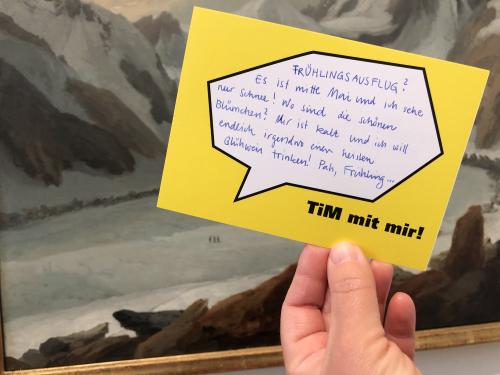 FRÜHLINGSAUSFLUG?
Es ist mitte Mai und ich sehe
nur Schnee! Wo sind die schönen
Blümchen? Mir ist kalt und ich will
endlich irgendwo einen heissen
Glühwein trinken! Pah, Frühling...
TiM mit mir!